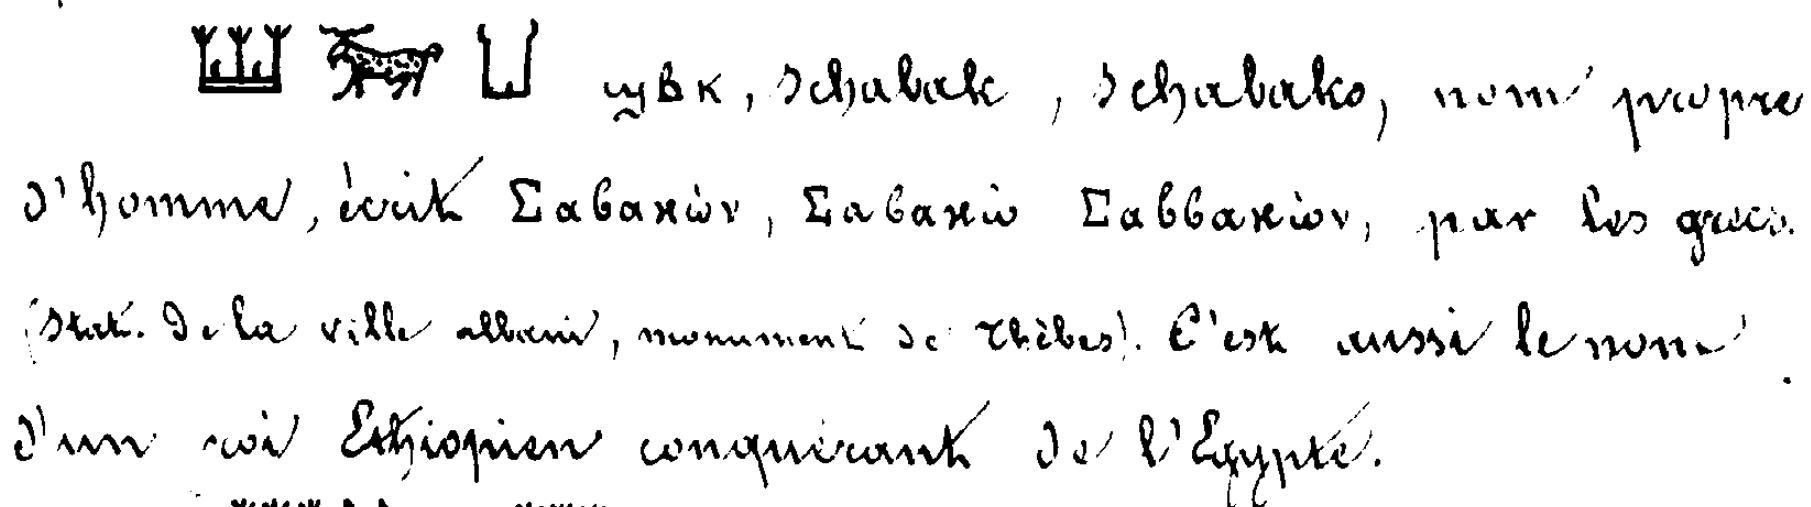 ϣⲃⲕ, schabak, schabako, nom propre
d'homme, écrit Σαβακὼν, Σαβακὼ Σαββακὼν, par les grecs.
(stat. de la ville albani, monument de Thèbes). C'est aussi le nom
d'un roi Ethiopien conquérant de l'Egypte.